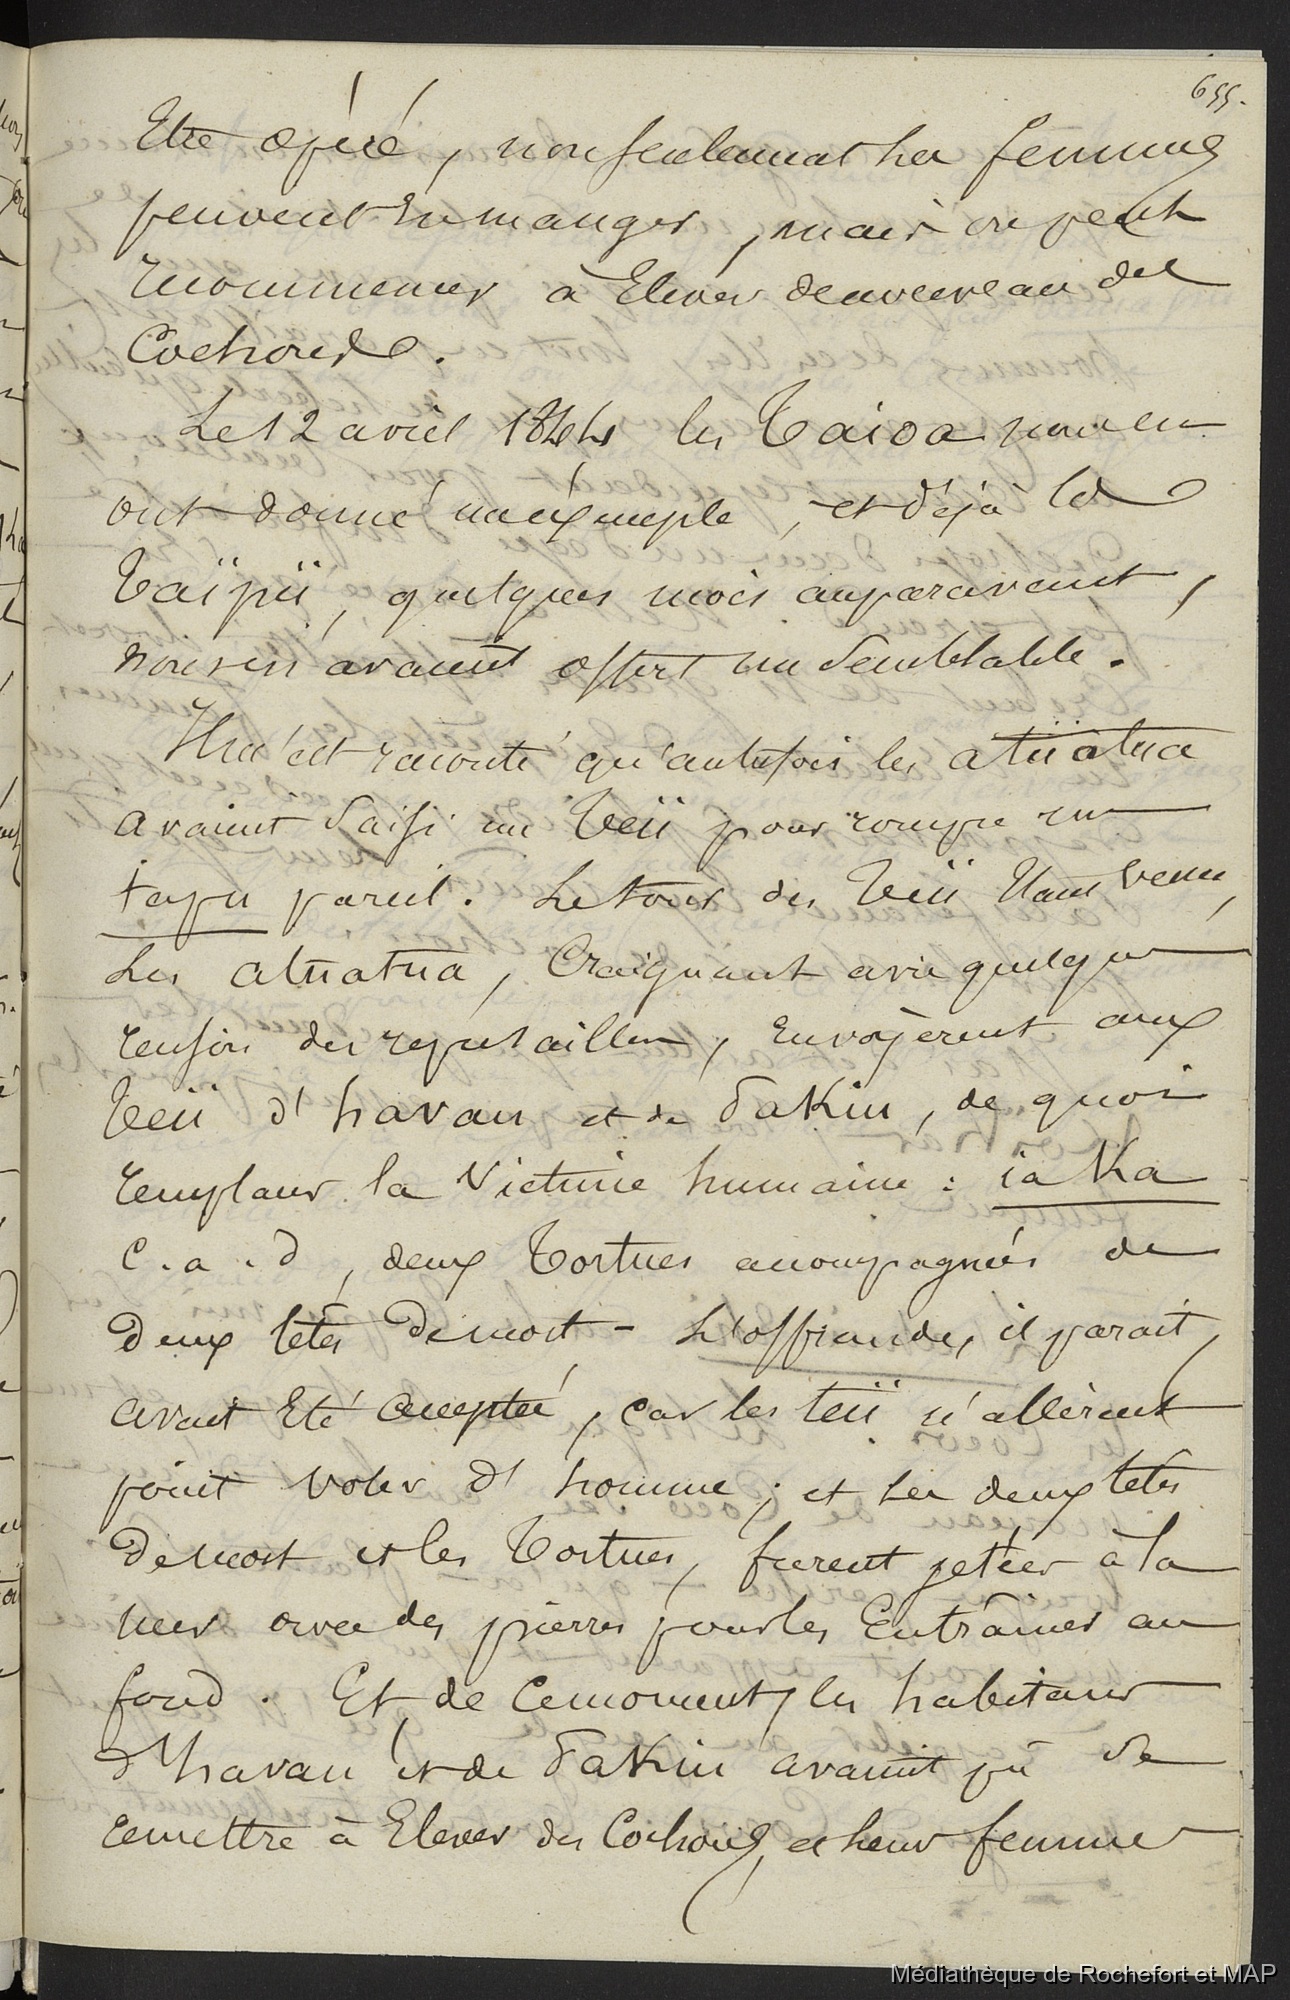 655.
Etre opéré, non seulement les femmes
peuvent En manger, mais on peut
recommencer à Elever de nouveau des
Cochons.
Le 12 avril 1844 les Taioa nous en
ont donné un éxemple, et déjà les
Taïpii, quelques mois auparavant,
nous en avaient offert un semblable.
Il m'est raconté qu'autrefois les atüatua
avaient saisi un Teii pour rompre un
tapu pareil. Le tour des Teii étant venu,
Les atuatua, Craignant avec quelque
raison des représailles, Envoyèrent aux
Teii d'havau et de Takiu, de quoi
remplacer la victime humaine : ia Ka
C.a.d, deux Tortues accompagnées de
deux têtes de mort - L'offrande, il parait,
avait Eté acceptée, car les teii n'allèrent
point voler d'homme; et les deux têtes
de mort et les Tortues, furent jetées à la
mer avec des pierres pour les Entraîner au
fond. Et de ce moment, les habitans
d'havau et de Takiu avaient pû se
remettre à Elever des Cochons, et leurs femmes
Médiathèque de Rochefort et MAP